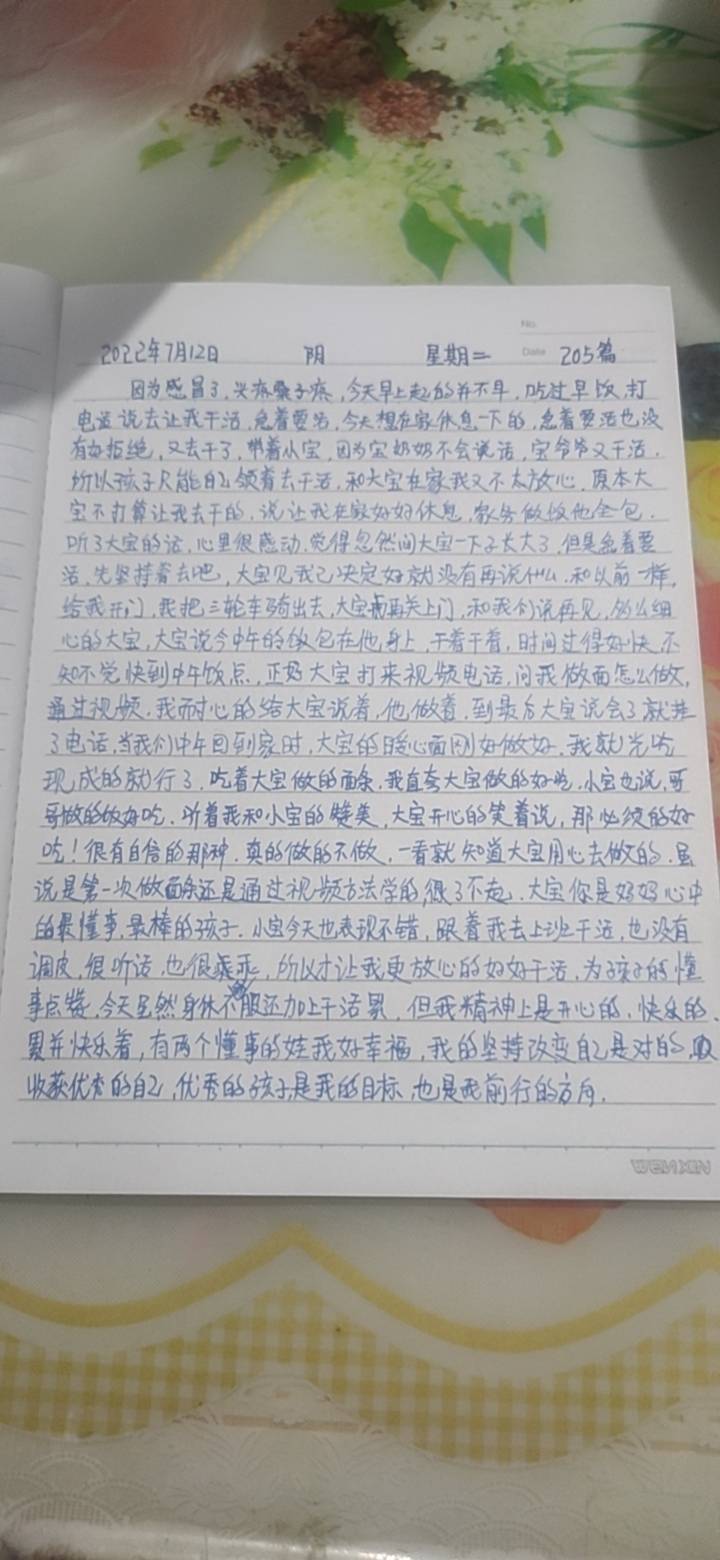 No.
2022年7月12日 阴 星期二 Date 205篇
因为感冒了,头疼嗓子疼,今天早上起的并不早,吃过早饭,打
电话说去让我干活,急着要活,今天想在家休息一下的,急着要活也没
有好拒绝,又去干了,带着小宝,因为宝奶奶不会说话,宝爷爷又干活,
所以孩子只能自己领着去干活,和大宝在家我又不太放心,原本大
宝不打算让我去干的,说让我在家好好休息,家务做饭他全包,
听了大宝的话,心里很感动,觉得忽然间大宝一下子长大了,但是急着要
活,先坚持着去吧,大宝见我已决定好就没有再说什么,和以前一样,
给我开门,我把三轮车骑出去,大宝再关上门,和我们说再见,多么细
心的大宝,大宝说今中午的饭包在他身上,干着干着,时间过得好快,不
知不觉快到中午饭点,正好大宝打来视频电话,问我做面怎么做,
通过视频,我耐心的给大宝说着,他做着,到最后大宝说会了就挂
了电话,当我们中午回到家时,大宝的暖心面刚好做好,我就光吃
现成的就行了,吃着大宝做的面条,我直夸大宝做的好吃,小宝也说,哥
哥做的饭好吃,听着我和小宝的赞美,大宝开心的笑着说,那必须的好
吃!很有自信的那种,真的做的不做,一看就知道大宝用心去做的,虽
说是第一次做面条还是通过视频方法学的,很了不起,大宝你是妈妈心中
的最懂事,最棒的孩子,小宝今天也表现不错,跟着我去上班干活,也没有
调皮,很听话,也很乖,所以才让我更放心的好好干活,为孩子的懂
事点赞,今天虽然身体不服还加上干活累,但我精神上是开心的,快乐的,
累并快乐着,有两个懂事的娃我好幸福,我的坚持改变自己是对的,
收获优秀的自己,优秀的孩子是我的目标,也是我前行的方向.
WENXIN